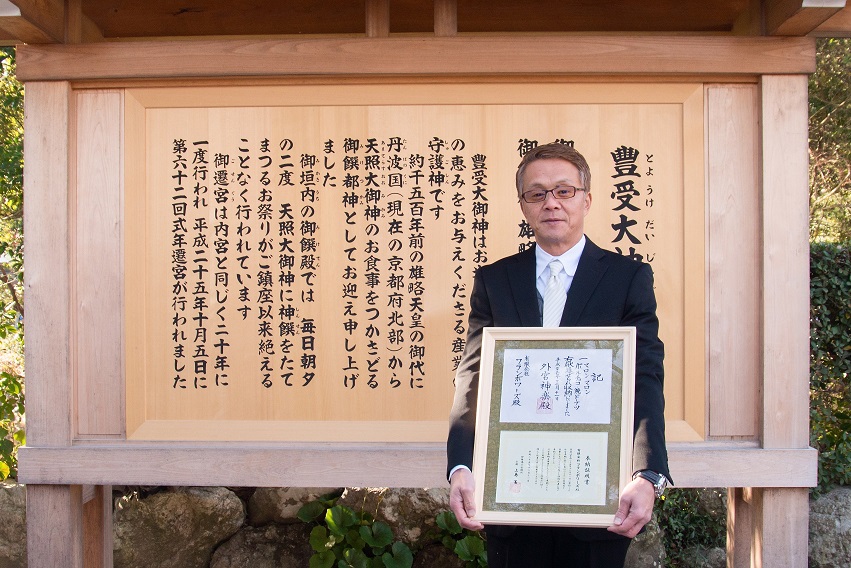 豊受大
御
御 雄略
豊受大御神はお
の恵みをお与えくださる産業
守護神です
約千五百年前の雄略天皇の御代に
丹波国(現在の京都府北部)から
天照大御神のお食事をつかさどる
御饌都神としてお迎え申し上げ
ました
御垣内の御饌殿では 毎日朝夕
の二度 天照大御神に神饌をたて
まつるお祭りがご鎮座以来絶える
ことなく行われています
御遷宮は内宮と同じく二十年に
一度行われ 平成二十五年十月五日に
第六十二回式年遷宮が行われました
記
一 マロンマロン
外宮神楽殿
有限会社
フランボワーズ殿
奉納証明書